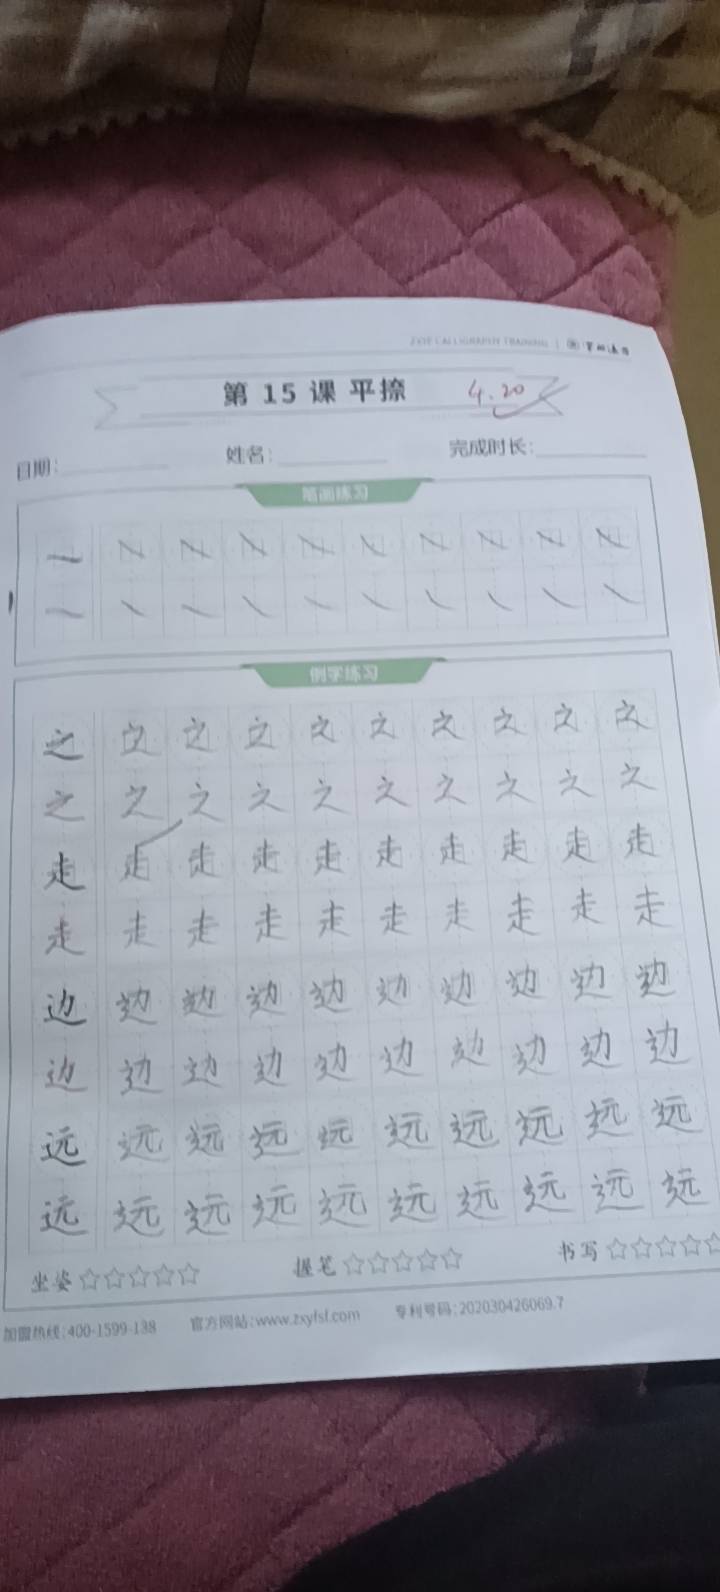 ZXYF CALLIGRAPHY TRAINING
第 15 课 平捺 4.20
日期: 姓名: 完成时长:
笔画练习
例字练习
之 之 之 之 之 之 之 之 之 之
之 之 之 之 之 之 之 之 之 之
走 走 走 走 走 走 走 走 走 走
走 走 走 走 走 走 走 走 走 走
边 边 边 边 边 边 边 边 边 边
边 边 边 边 边 边 边 边 边 边
远 远 远 远 远 远 远 远 远 远
远 远 远 远 远 远 远 远 远 远
坐姿 ☆☆☆☆☆ 握笔 ☆☆☆☆☆ 书写 ☆☆☆☆☆
加盟热线:400-1599-138 官方网站:www.zxyfsf.com 专利号码:202030426069.7